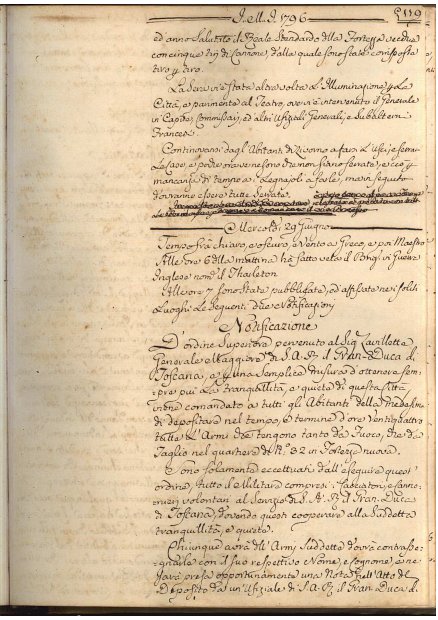 I. M. I. 1796
119
ed anno Salutato il Reale Stendardo della Fortezza vecchia
con cinque tiri di Cannone, dalla quale sono state corrisposta
tiro p tiro.
La Sera vi è stata altra volta L'Illuminazione p La
Città, e parimente al Teatro, ove vi è intervenuto il Generale
in Capite, Commissarj, ed altri Ufiziali Generali, e Subalterni
Francesi.
Continovano dagl'Abitanti di Livorno a farsi L'
Case, e poche ve ne sono che non siano ferrate, e ciò p
mancanza di tempo a' Legnajoli a farle, ma in seguito
dovranno essere tutte Serrate.
Mercoldì 29 Giugno
Tempo frà chiaro, e oscuro, e Vento a Greco, e poi Maestro
Alle ore 6 della mattina ha fatto vela il Brig. di Guerra
Inglese nom. il Tharleton
Alle ore 7 sono State pubblicate, ed affisse ne i soliti
Luoghi Le Seguenti due Notificazioni
Notificazione
D'ordine Superiore pervenuto al Sig. Lavillette
Generale Maggiore di S. A. R. il Gran-Duca di
Toscana, e p una Semplice misura d'ottenere sem-
pre più La tranquillità, e quiete di questa Città
viene comandato a tutti gli Abitanti della medesima
di depositare nel tempo, e termine d'ore Ventiquattro
tutte L'Armi che tengono tanto da Fuoco, che da
Taglio nel quartiere di N.° 32 in Fortezza nuova.
E sono solamente eccettuati dall'eseguire quest'
ordine, tutto il Militare compresi i Cacciatori, e Canno-
nieri volontari al Servizio di S. A. R. il Gran-Duca
di Toscana, dovendo questi cooperare alla Suddetta
tranquillità, e quiete.
Chiunque avrà dell'Armi Suddette dovrà contrasse-
gnarle con il suo respettivo Nome, e Cognome, e ne
sarà presa opportunamente una Nota nell'Atto del
Deposito da un'Ufiziale di S. A. R. il Gran-Duca di